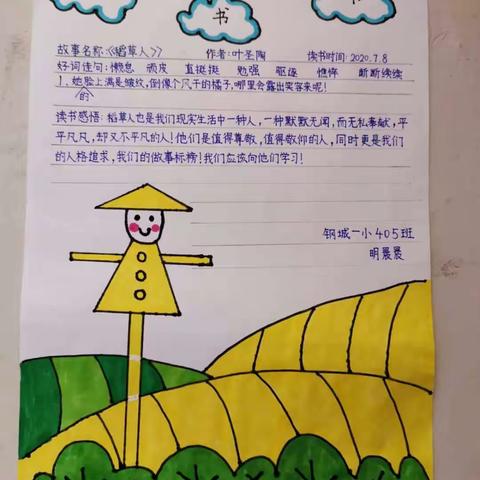 书
故事名称:《稻草人》 作者:叶圣陶 读书时间:2020.7.8
好词佳句:懒息 顽皮 直挺挺 勉强 驱逐 憔悴 断断续续
1.她脸上满是皱纹,倒像个风干的橘子,哪里会露出笑容来呢!
的
读书感悟:稻草人也是我们现实生活中一种人,一种默默无闻,而无私奉献,平
平凡凡,却又不平凡的人!他们是值得尊敬,值得敬仰的人,同时更是我们
的人格追求,我们的做事标榜!我们应该向他们学习!
钢城一小405班
明晨晨